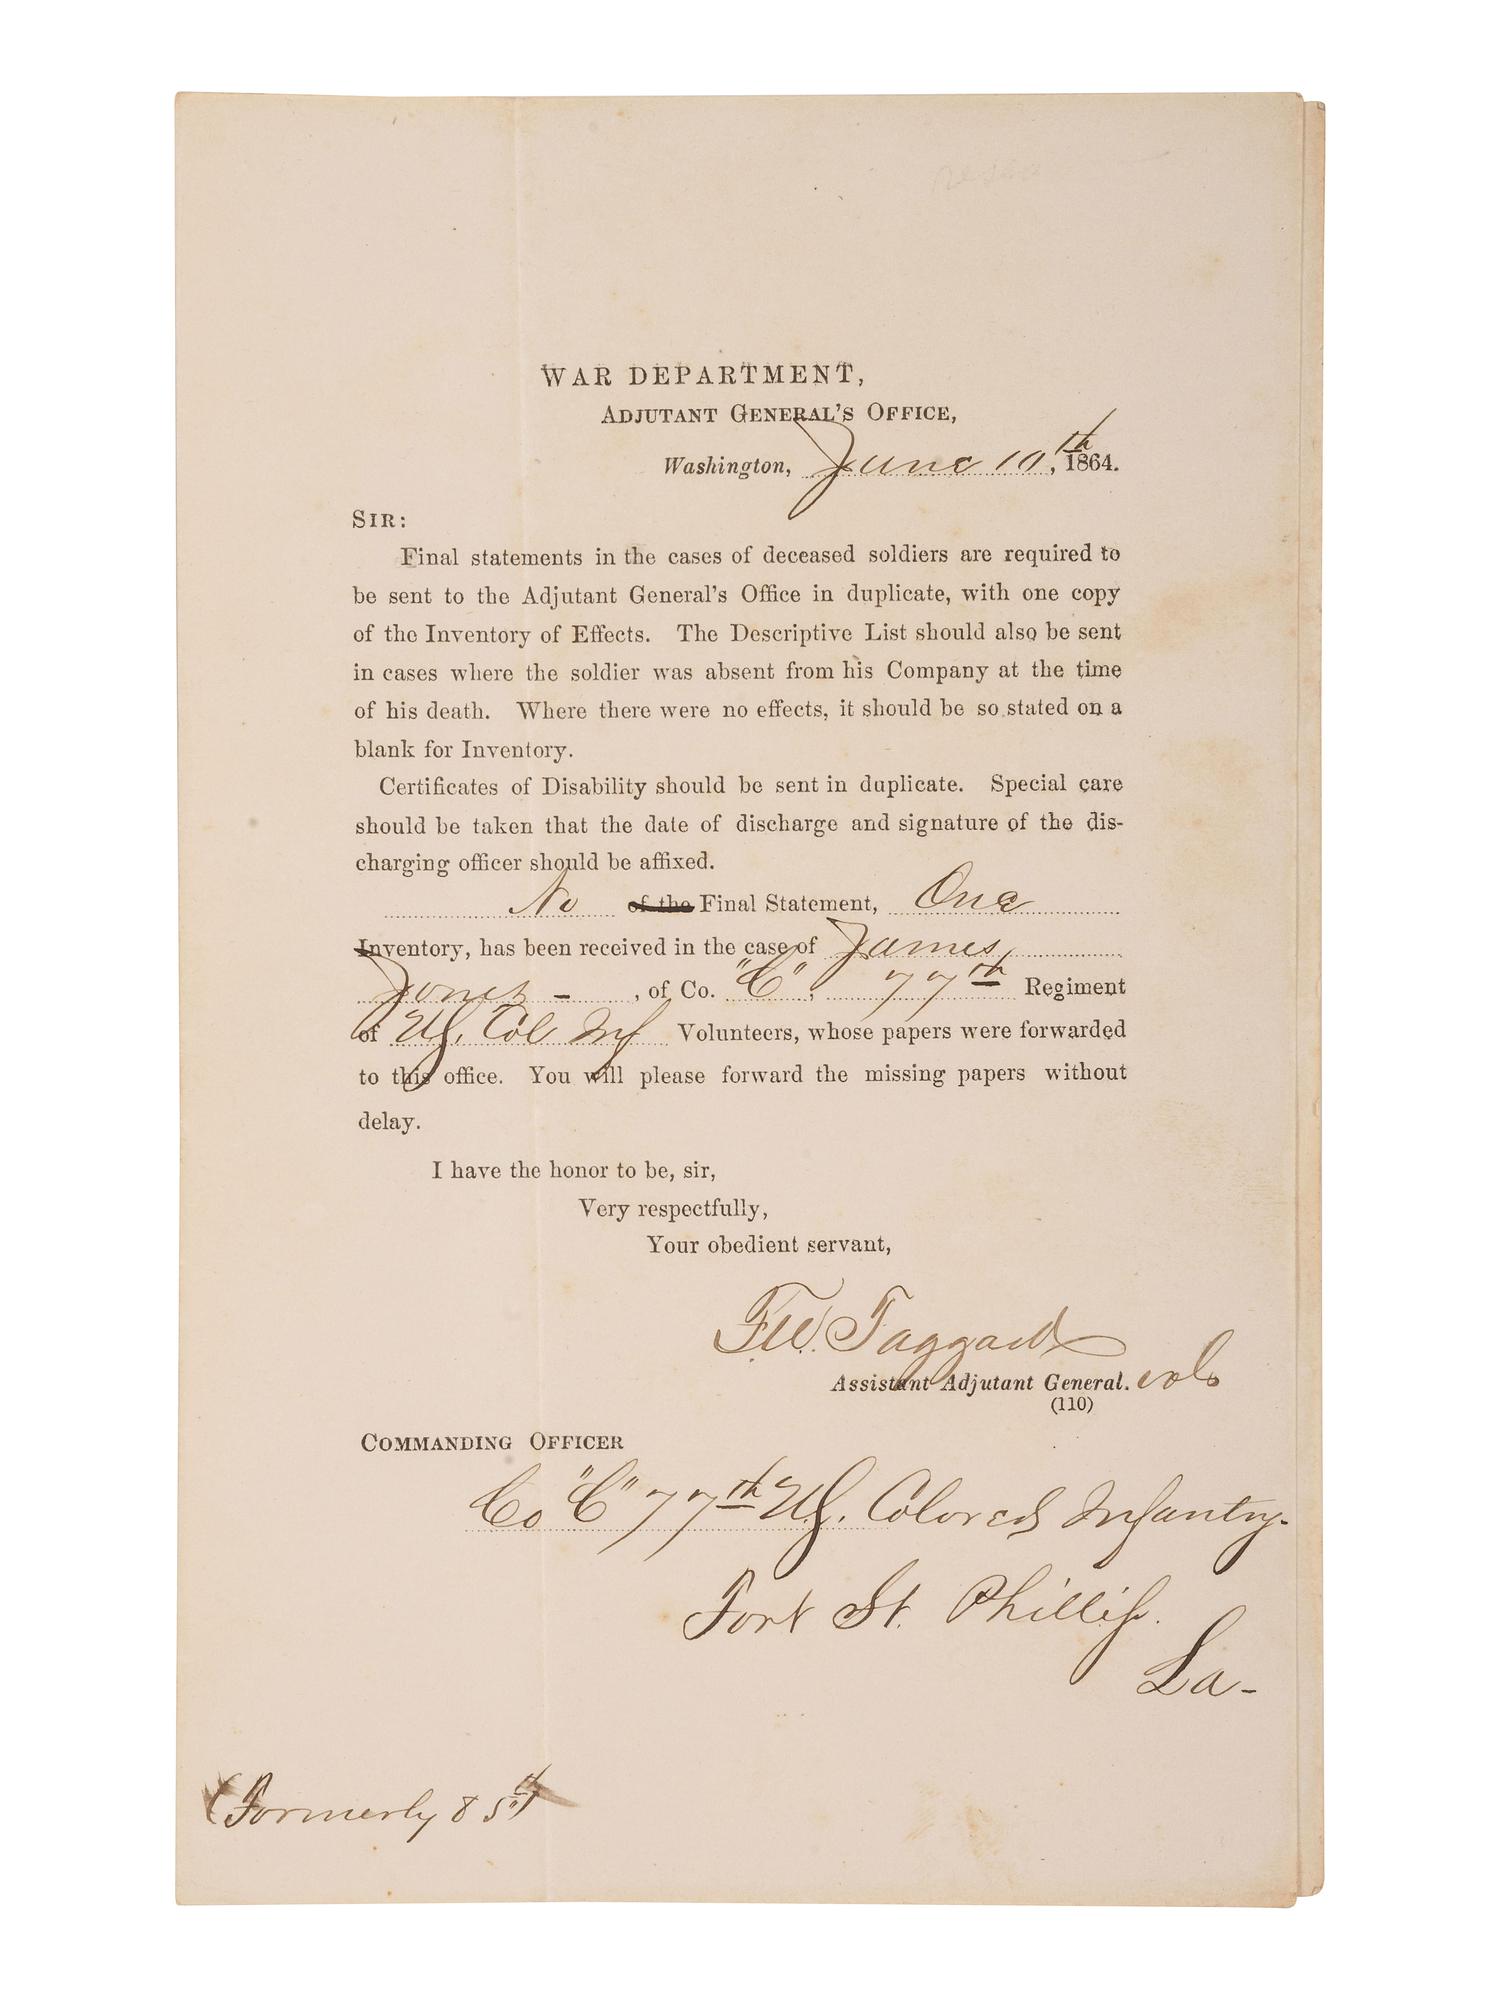 WAR DEPARTMENT,
ADJUTANT GENERAL'S OFFICE,
Washington, June 10th, 1864.
SIR:
Final statements in the cases of deceased soldiers are required to
be sent to the Adjutant General's Office in duplicate, with one copy
of the Inventory of Effects. The Descriptive List should also be sent
in cases where the soldier was absent from his Company at the time
of his death. Where there were no effects, it should be so stated on a
blank for Inventory.
Certificates of Disability should be sent in duplicate. Special care
should be taken that the date of discharge and signature of the dis-
charging officer should be affixed.
No of the Final Statement, One
Inventory, has been received in the case of James
Jones - , of Co. "C", 77th Regiment
of U.S. Col Inf Volunteers, whose papers were forwarded
to this office. You will please forward the missing papers without
delay.
I have the honor to be, sir,
Very respectfully,
Your obedient servant,
F.W. Taggard
Assistant Adjutant General. vols
(110)
COMMANDING OFFICER
Co "C" 77th U.S. Colored Infantry-
Fort St. Phillip.
La-
(Formerly 85th)